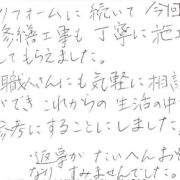 リフォームに続いて今回
修繕工事も丁寧に施工
してもらえました。
職人さんにも気軽に相談
ができこれからの生活の中
参考にすることにしました。
返事がたいへんお
なり、すみませんでした。